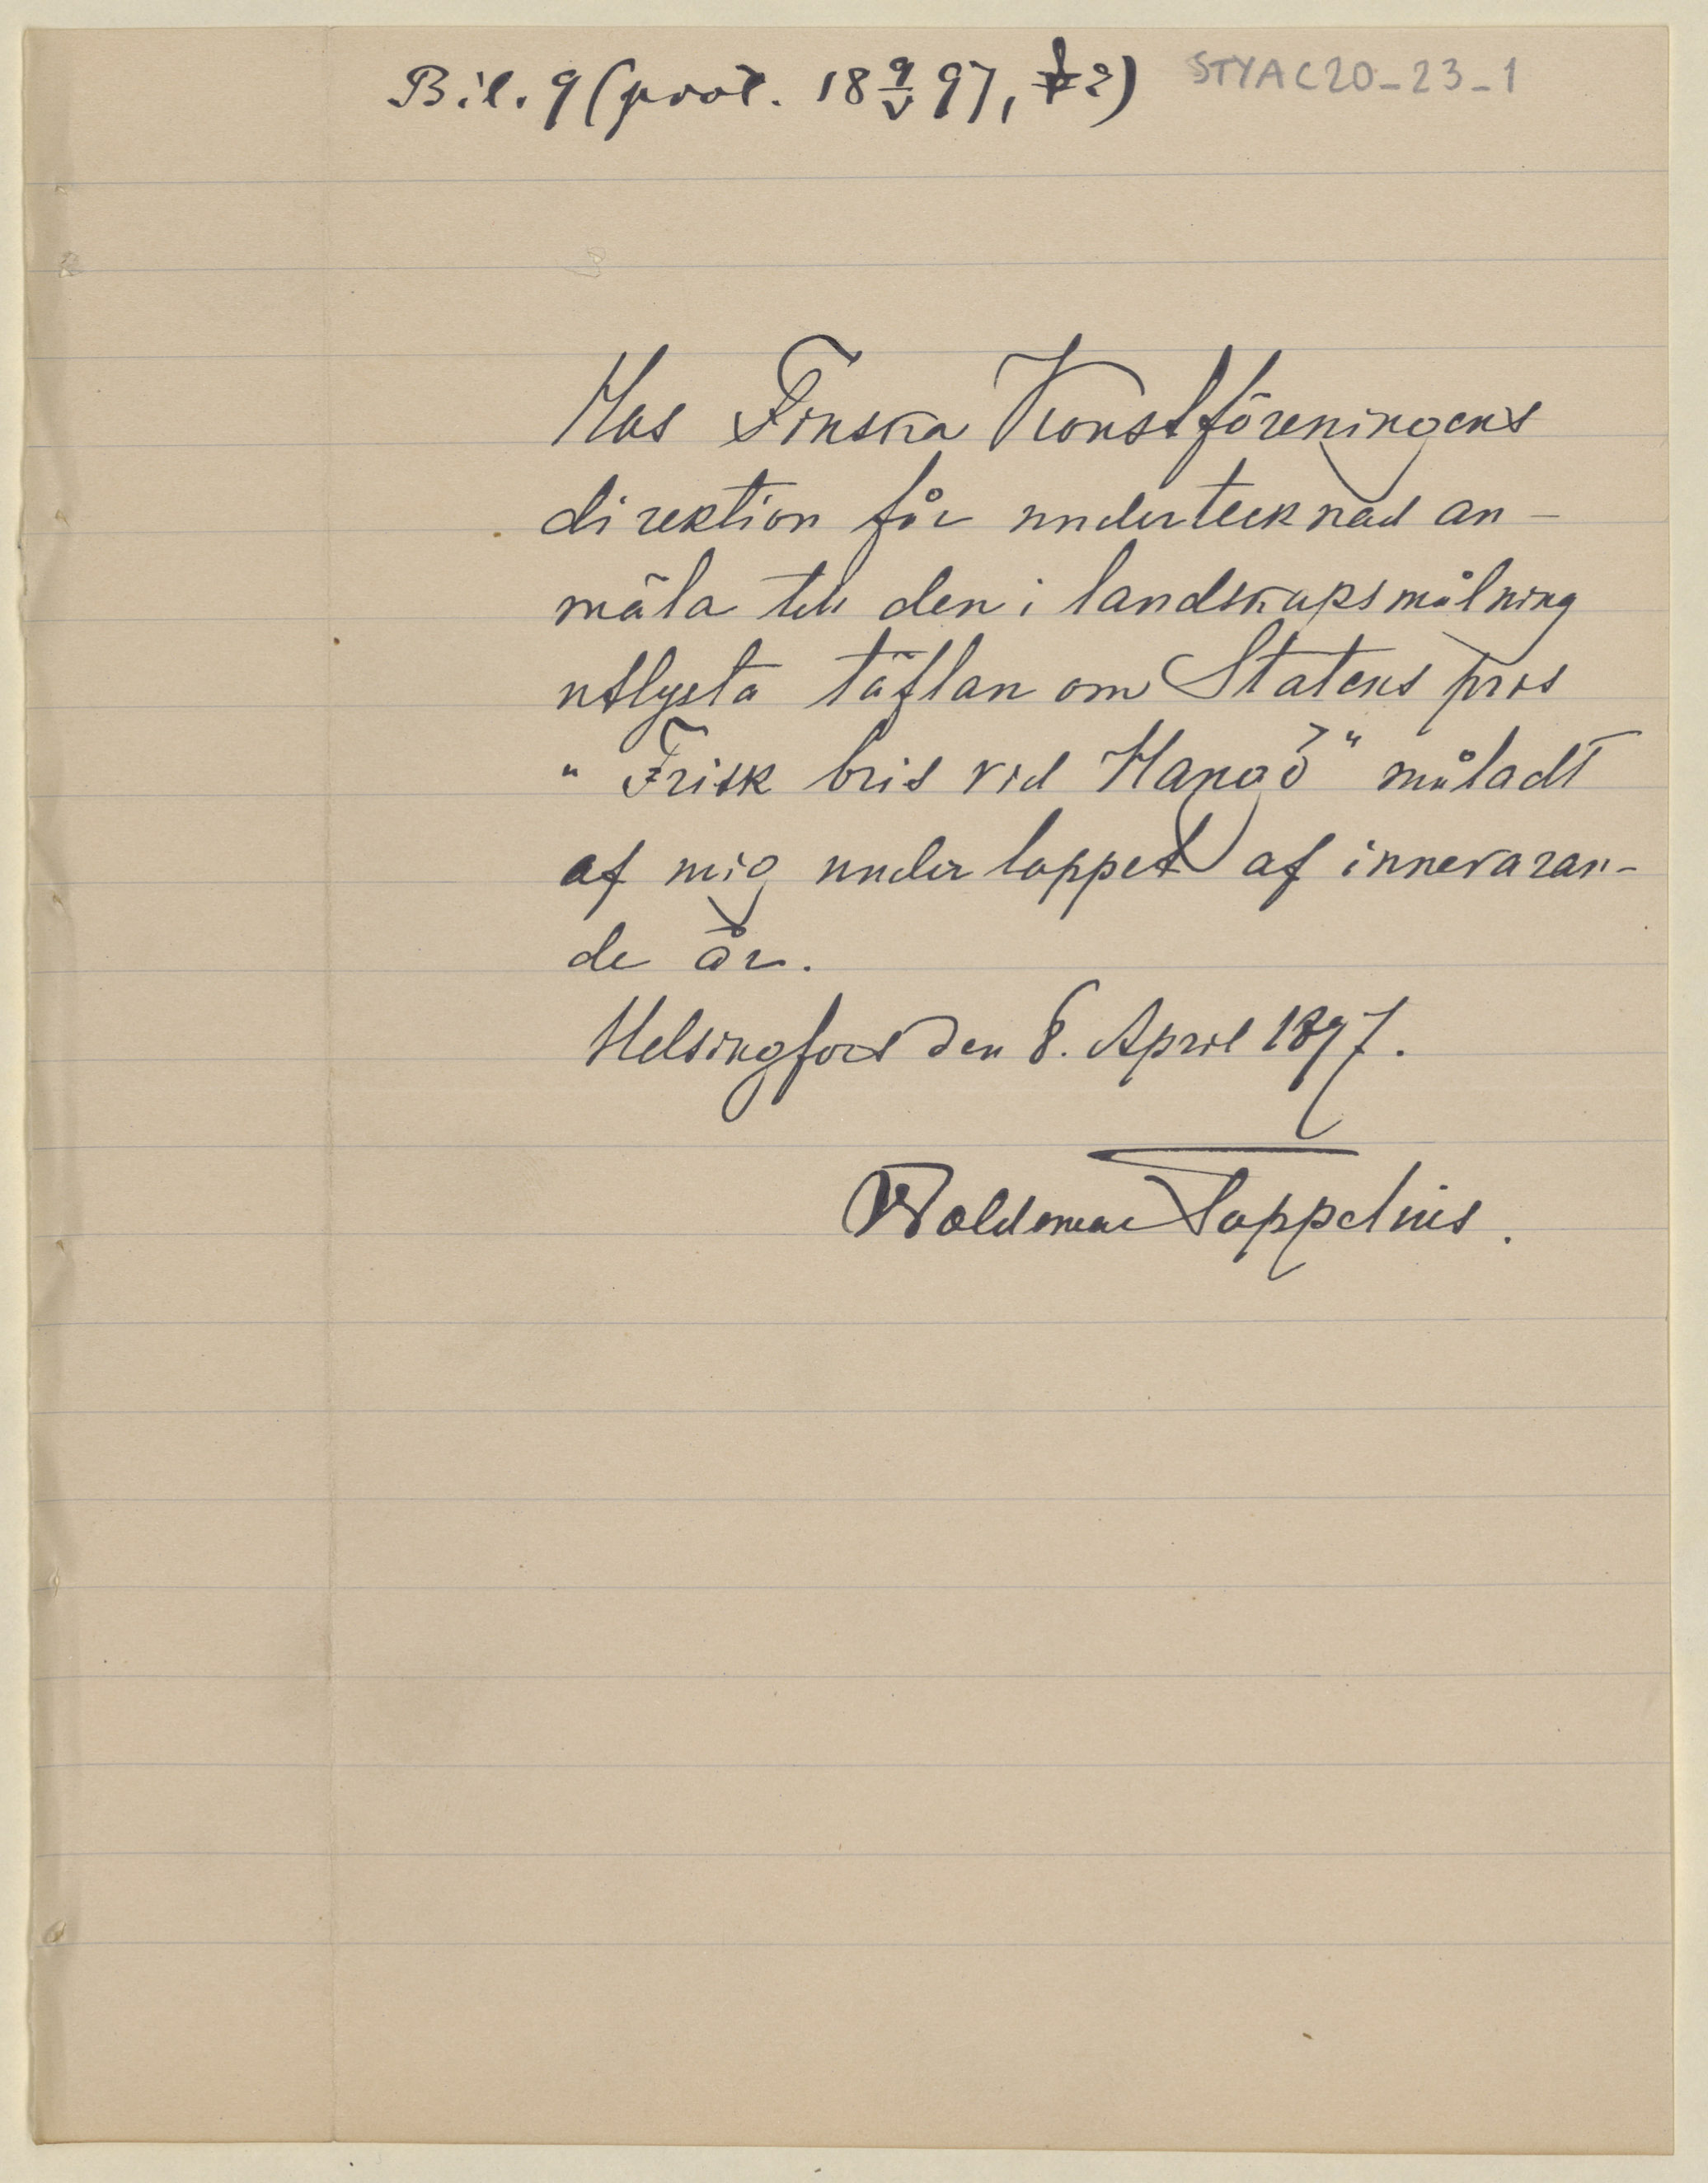 Bil. 9 (prot. 18 9/V 97, § 2) STYAC20-23-1
Hos Finska Konstföreningens
direktion får undertecknad an-
mäla till den i landskapsmålning
utlysta täflan om Statens pris
" Frisk bris vid Hangö " måladt
af mig under loppet af innevaran-
de år.
Helsingfors den 8. April 1897.
Woldemar Toppelius.